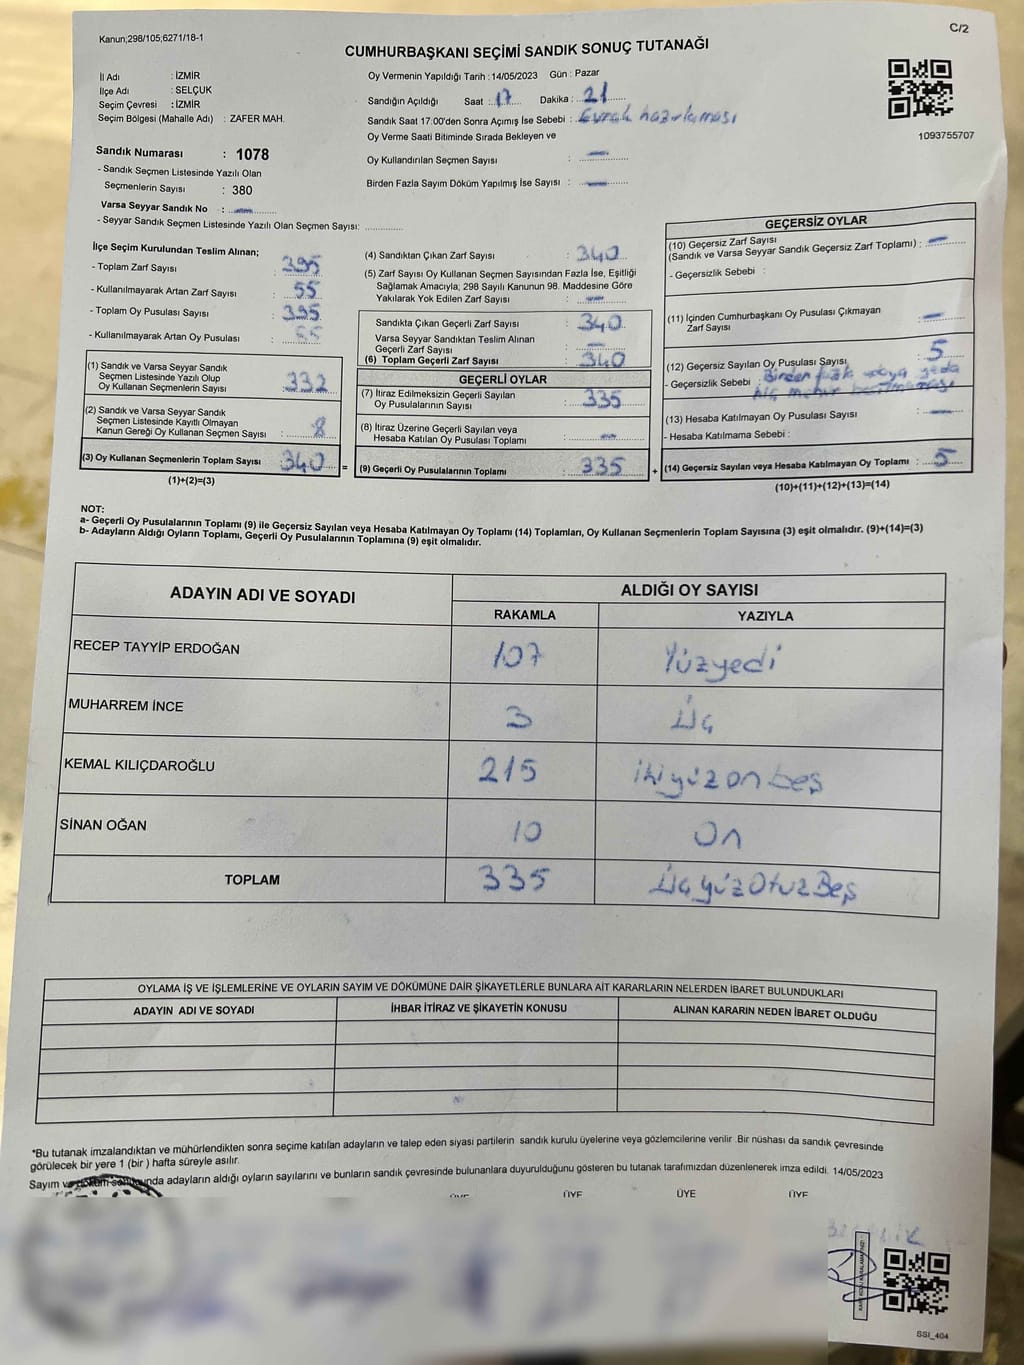 Kanun;298/105;6271/18-1
C/2
CUMHURBAŞKANI SEÇİMİ SANDIK SONUÇ TUTANAĞI
İl Adı : İZMİR
İlçe Adı : SELÇUK
Seçim Çevresi : İZMİR
Seçim Bölgesi (Mahalle Adı) : ZAFER MAH.
Oy Vermenin Yapıldığı Tarih : 14/05/2023 Gün : Pazar
Sandığın Açıldığı Saat : 17 Dakika : 21
Sandık Saat 17:00'den Sonra Açımış İse Sebebi : Evrak hazırlaması
Oy Verme Saati Bitiminde Sırada Bekleyen ve
Oy Kullandırılan Seçmen Sayısı : —
Birden Fazla Sayım Döküm Yapılmış İse Sayısı : —
1093755707
Sandık Numarası : 1078
- Sandık Seçmen Listesinde Yazılı Olan
Seçmenlerin Sayısı : 380
Varsa Seyyar Sandık No : —
- Seyyar Sandık Seçmen Listesinde Yazılı Olan Seçmen Sayısı: ............
İlçe Seçim Kurulundan Teslim Alınan;
- Toplam Zarf Sayısı : 395
- Kullanılmayarak Artan Zarf Sayısı : 55
- Toplam Oy Pusulası Sayısı : 395
- Kullanılmayarak Artan Oy Pusulası : 55
(1) Sandık ve Varsa Seyyar Sandık
Seçmen Listesinde Yazılı Olup
Oy Kullanan Seçmenlerin Sayısı : 332
(2) Sandık ve Varsa Seyyar Sandık
Seçmen Listesinde Kayıtlı Olmayan
Kanun Gereği Oy Kullanan Seçmen Sayısı : 8
(3) Oy Kullanan Seçmenlerin Toplam Sayısı 340 =
(1)+(2)=(3)
(4) Sandıktan Çıkan Zarf Sayısı : 340
(5) Zarf Sayısı Oy Kullanan Seçmen Sayısından Fazla İse, Eşitliği
Sağlamak Amacıyla; 298 Sayılı Kanunun 98. Maddesine Göre
Yakılarak Yok Edilen Zarf Sayısı : —
Sandıkta Çıkan Geçerli Zarf Sayısı : 340
Varsa Seyyar Sandıktan Teslim Alınan
Geçerli Zarf Sayısı : —
(6) Toplam Geçerli Zarf Sayısı : 340
GEÇERLİ OYLAR
(7) İtiraz Edilmeksizin Geçerli Sayılan
Oy Pusulalarının Sayısı : 335
(8) İtiraz Üzerine Geçerli Sayılan veya
Hesaba Katılan Oy Pusulası Toplamı : —
(9) Geçerli Oy Pusulalarının Toplamı : 335 +
GEÇERSİZ OYLAR
(10) Geçersiz Zarf Sayısı
(Sandık ve Varsa Seyyar Sandık Geçersiz Zarf Toplamı) : —
- Geçersizlik Sebebi :
(11) İçinden Cumhurbaşkanı Oy Pusulası Çıkmayan
Zarf Sayısı : —
(12) Geçersiz Sayılan Oy Pusulası Sayısı : 5
- Geçersizlik Sebebi : Birden fazla veya yada
hiç mühür
(13) Hesaba Katılmayan Oy Pusulası Sayısı : —
- Hesaba Katılmama Sebebi :
(14) Geçersiz Sayılan veya Hesaba Katılmayan Oy Toplamı : 5
(10)+(11)+(12)+(13)=(14)
NOT:
a- Geçerli Oy Pusulalarının Toplamı (9) ile Geçersiz Sayılan veya Hesaba Katılmayan Oy Toplamı (14) Toplamları, Oy Kullanan Seçmenlerin Toplam Sayısına (3) eşit olmalıdır. (9)+(14)=(3)
b- Adayların Aldığı Oyların Toplamı, Geçerli Oy Pusulalarının Toplamına (9) eşit olmalıdır.
ADAYIN ADI VE SOYADI ALDIĞI OY SAYISI
RAKAMLA YAZIYLA
RECEP TAYYİP ERDOĞAN 107 Yüzyedi
MUHARREM İNCE 3 Üç
KEMAL KILIÇDAROĞLU 215 ikiyüzonbeş
SİNAN OĞAN 10 On
TOPLAM 335 ÜçyüzOtuzBeş
OYLAMA İŞ VE İŞLEMLERİNE VE OYLARIN SAYIM VE DÖKÜMÜNE DAİR ŞİKAYETLERLE BUNLARA AİT KARARLARIN NELERDEN İBARET BULUNDUKLARI
ADAYIN ADI VE SOYADI İHBAR İTİRAZ VE ŞİKAYETİN KONUSU ALINAN KARARIN NEDEN İBARET OLDUĞU
*Bu tutanak imzalandıktan ve mühürlendikten sonra seçime katılan adayların ve talep eden siyasi partilerin sandık kurulu üyelerine veya gözlemcilerine verilir. Bir nüshası da sandık çevresinde
görülecek bir yere 1 (bir ) hafta süreyle asılır.
Sayım ve döküm sonucunda adayların aldığı oyların sayılarını ve bunların sandık çevresinde bulunanlara duyurulduğunu gösteren bu tutanak tarafımızdan düzenlenerek imza edildi. 14/05/2023
ÜYE ÜYE ÜYE ÜYE
SSI_404